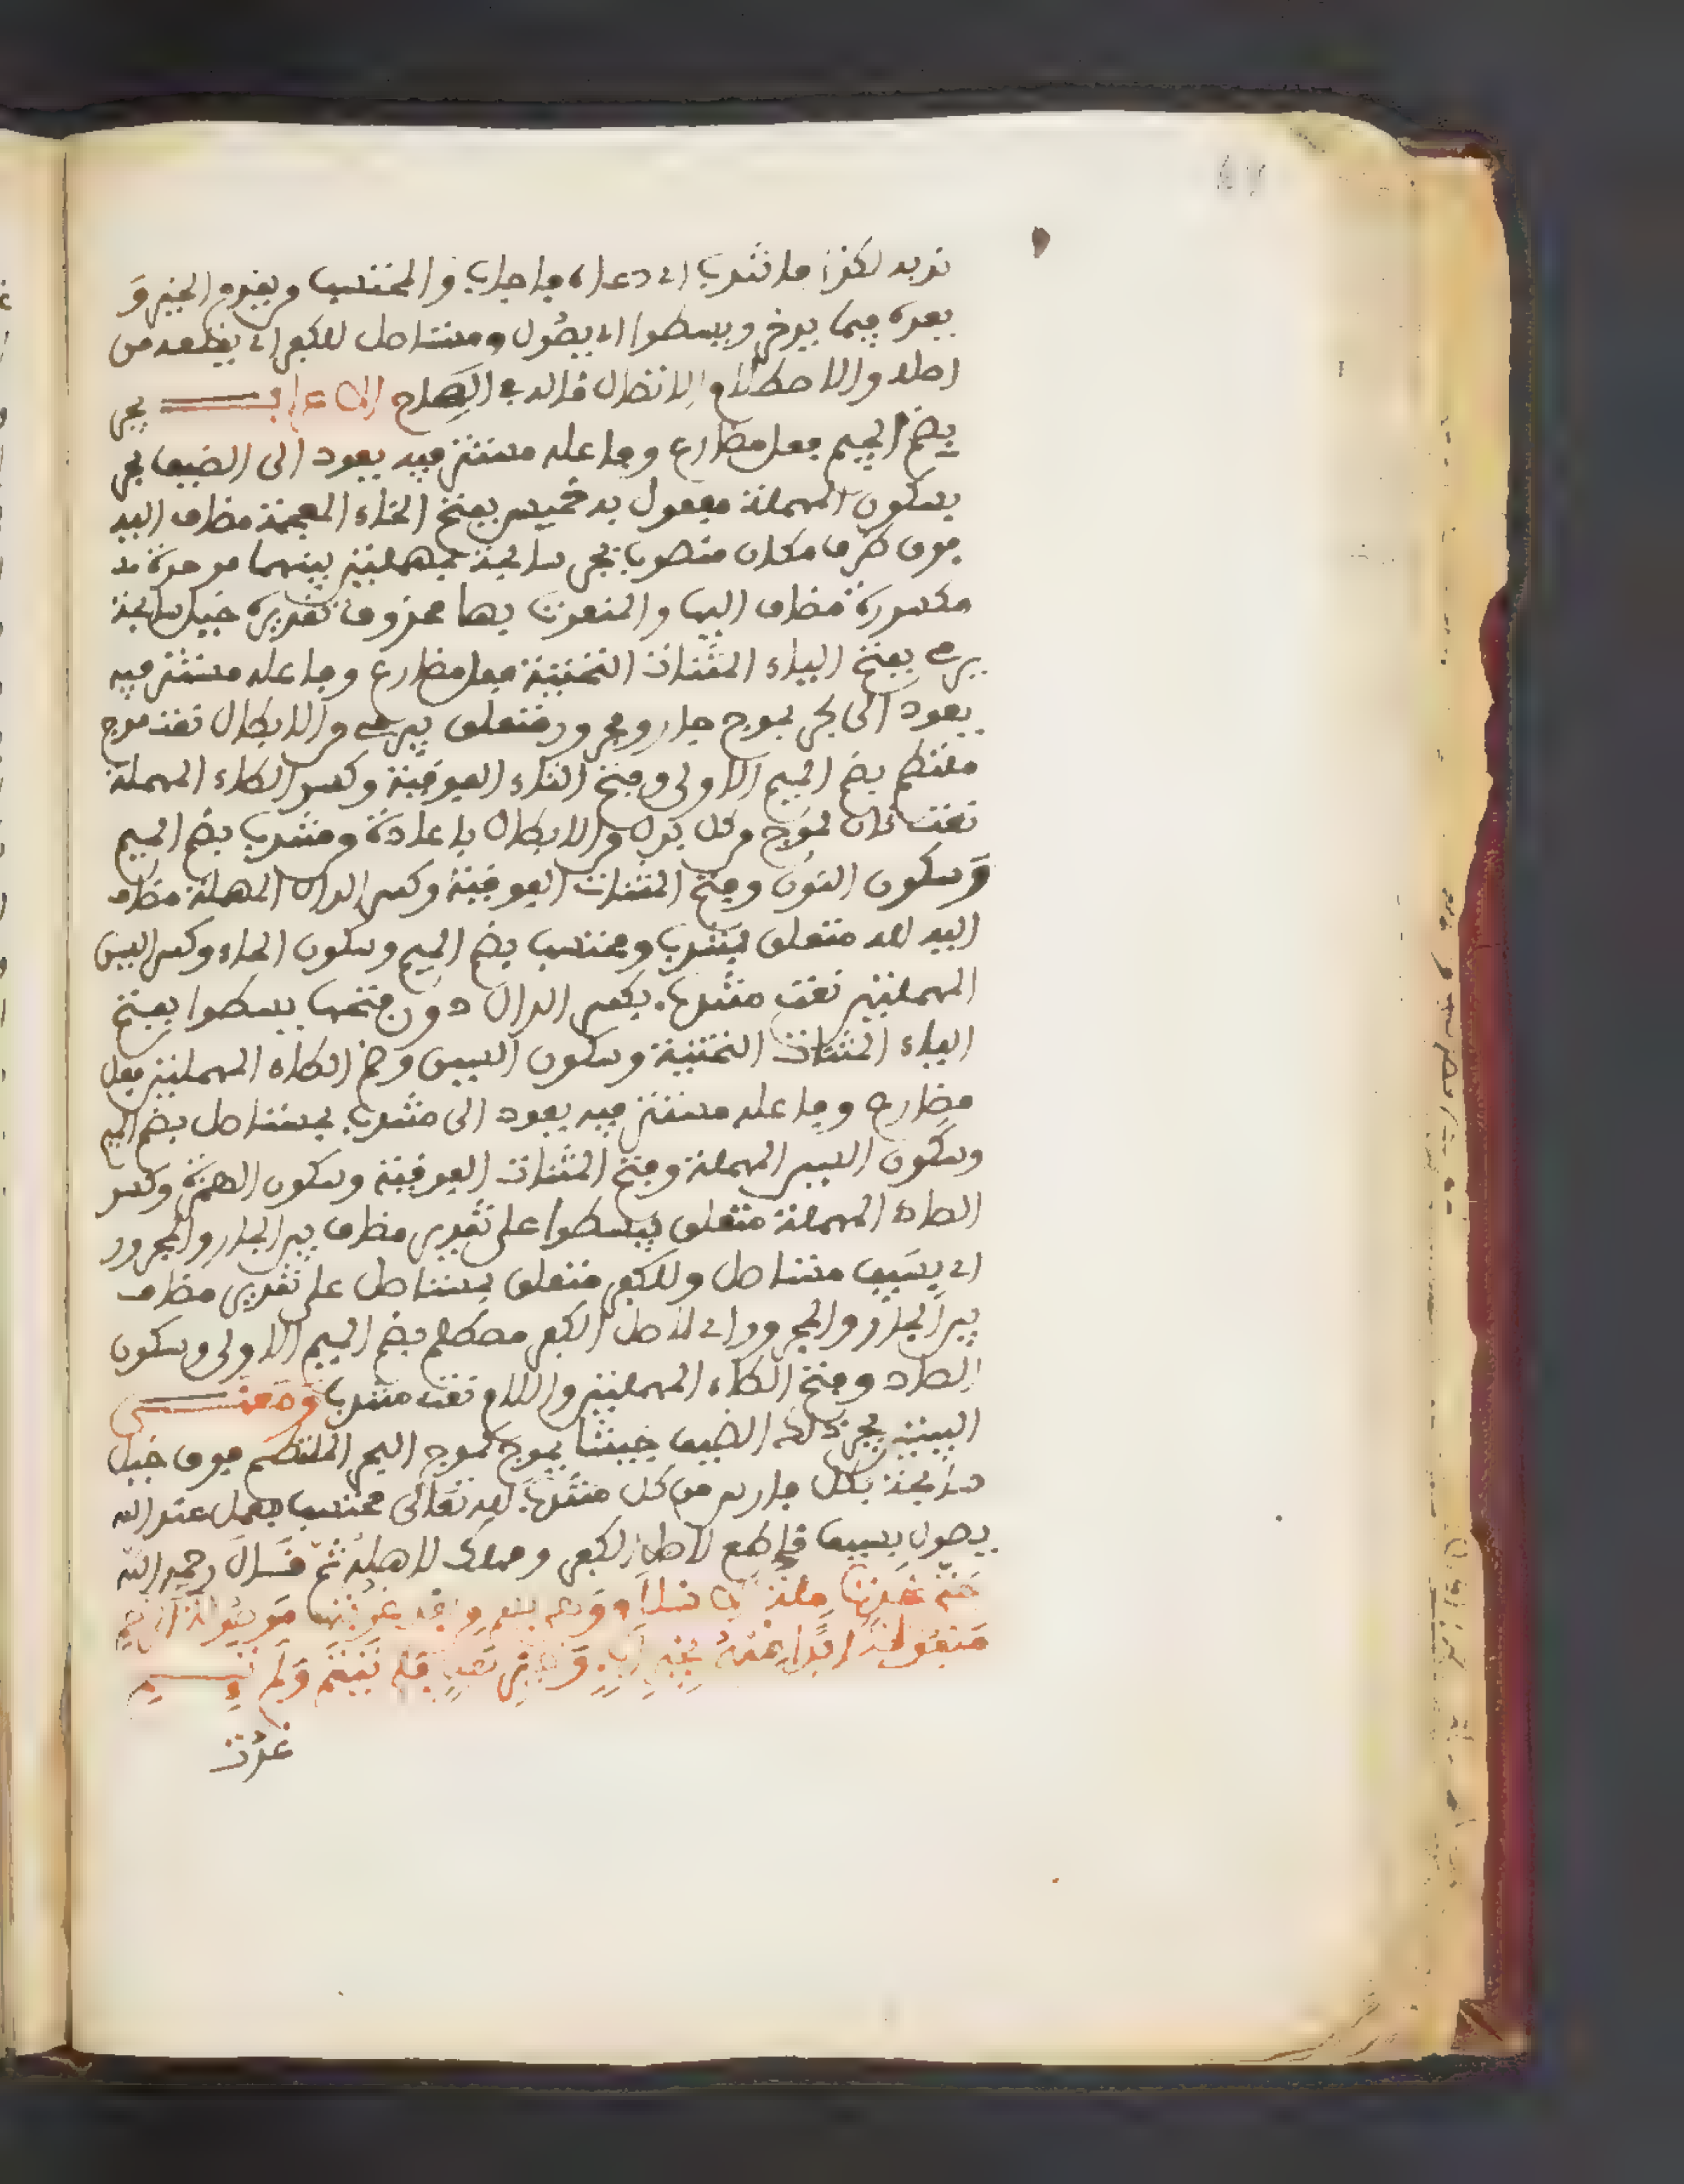 ندبه لكذا فانتدب اي دعاه فاجاب والمحتسب من يقدم الخير و
يعده فيما يدخر ويسطوا اي يصول ومستاصل للكفر اي يقطعه من
اصله والاصطلام الاستئصال قاله في الصحاح الاعراب يجر
بضم الجيم فعل مضارع وفاعله مستتر فيه يعود الى الضيف بحر
بسكون المهملة مفعول به خميس بفتح الخاء المعجمة مضاف اليه
فوق ظرف مكان منصوب بيجر سابحة بمهملتين بينهما موحدة
مكسورة مضاف اليها والمنعوت بها محذوف تقديره خيل سابحة
يرمي بفتح الياء المثنات التحتية فعل مضارع وفاعله مستتر فيه
يعود الى بحر بموج جار ومجرور متعلق بيرمي والابطال نعت موج
ملتطم بضم الميم الاولى وفتح التاء الفوقية وكسر الطاء المهملة
نعت ثان لموج من كل بدل من الابطال باعادة من منتدب بضم الميم
وسكون النون وفتح المثنات الفوقية وكسر الدال المهملة مضاف
اليه لله متعلق بمنتدب ومحتسب بضم الميم وسكون الحاء وكسر السين
المهملتين نعت منتدب بكسر الدال دون فتحها يسطوا بفتح
الياء المثنات التحتية وسكون السين وضم الطاء المهملتين فعل
مضارع وفاعله مستتر فيه يعود الى منتدب بمستاصل بضم الميم
وسكون السين المهملة وفتح المثنات الفوقية وسكون الهمزة وكسر
الصاد المهملة متعلق بيسطوا على تقدير مضاف بين الجار والمجرور
اي بسيف مستاصل وللكفر متعلق بمستاصل على تقدير مضاف
بين الجار والمجرور اي لاصل الكفر مصطلم بضم الميم الاولى وسكون
الصاد وفتح الطاء المهملتين واللام نعت منتدب ومعنى
البيتين يجر ذلك الضيف جيشا يموج كموج اليم الملتطم فوق خيل
سابحة بكل فارس من كل منتدب لله تعالى محتسب بعمل عند الله
يصول بسيف قاطع لاصل الكفر ومهلك لاهله ثم قال رحمه الله
حتى غدت ملة الاسلام وهي بهم من بعد غربتها موصولة الرحم
مكفولة ابدا منهم بخير اب وخير بعل فلم تيتم ولم تئم
غدت